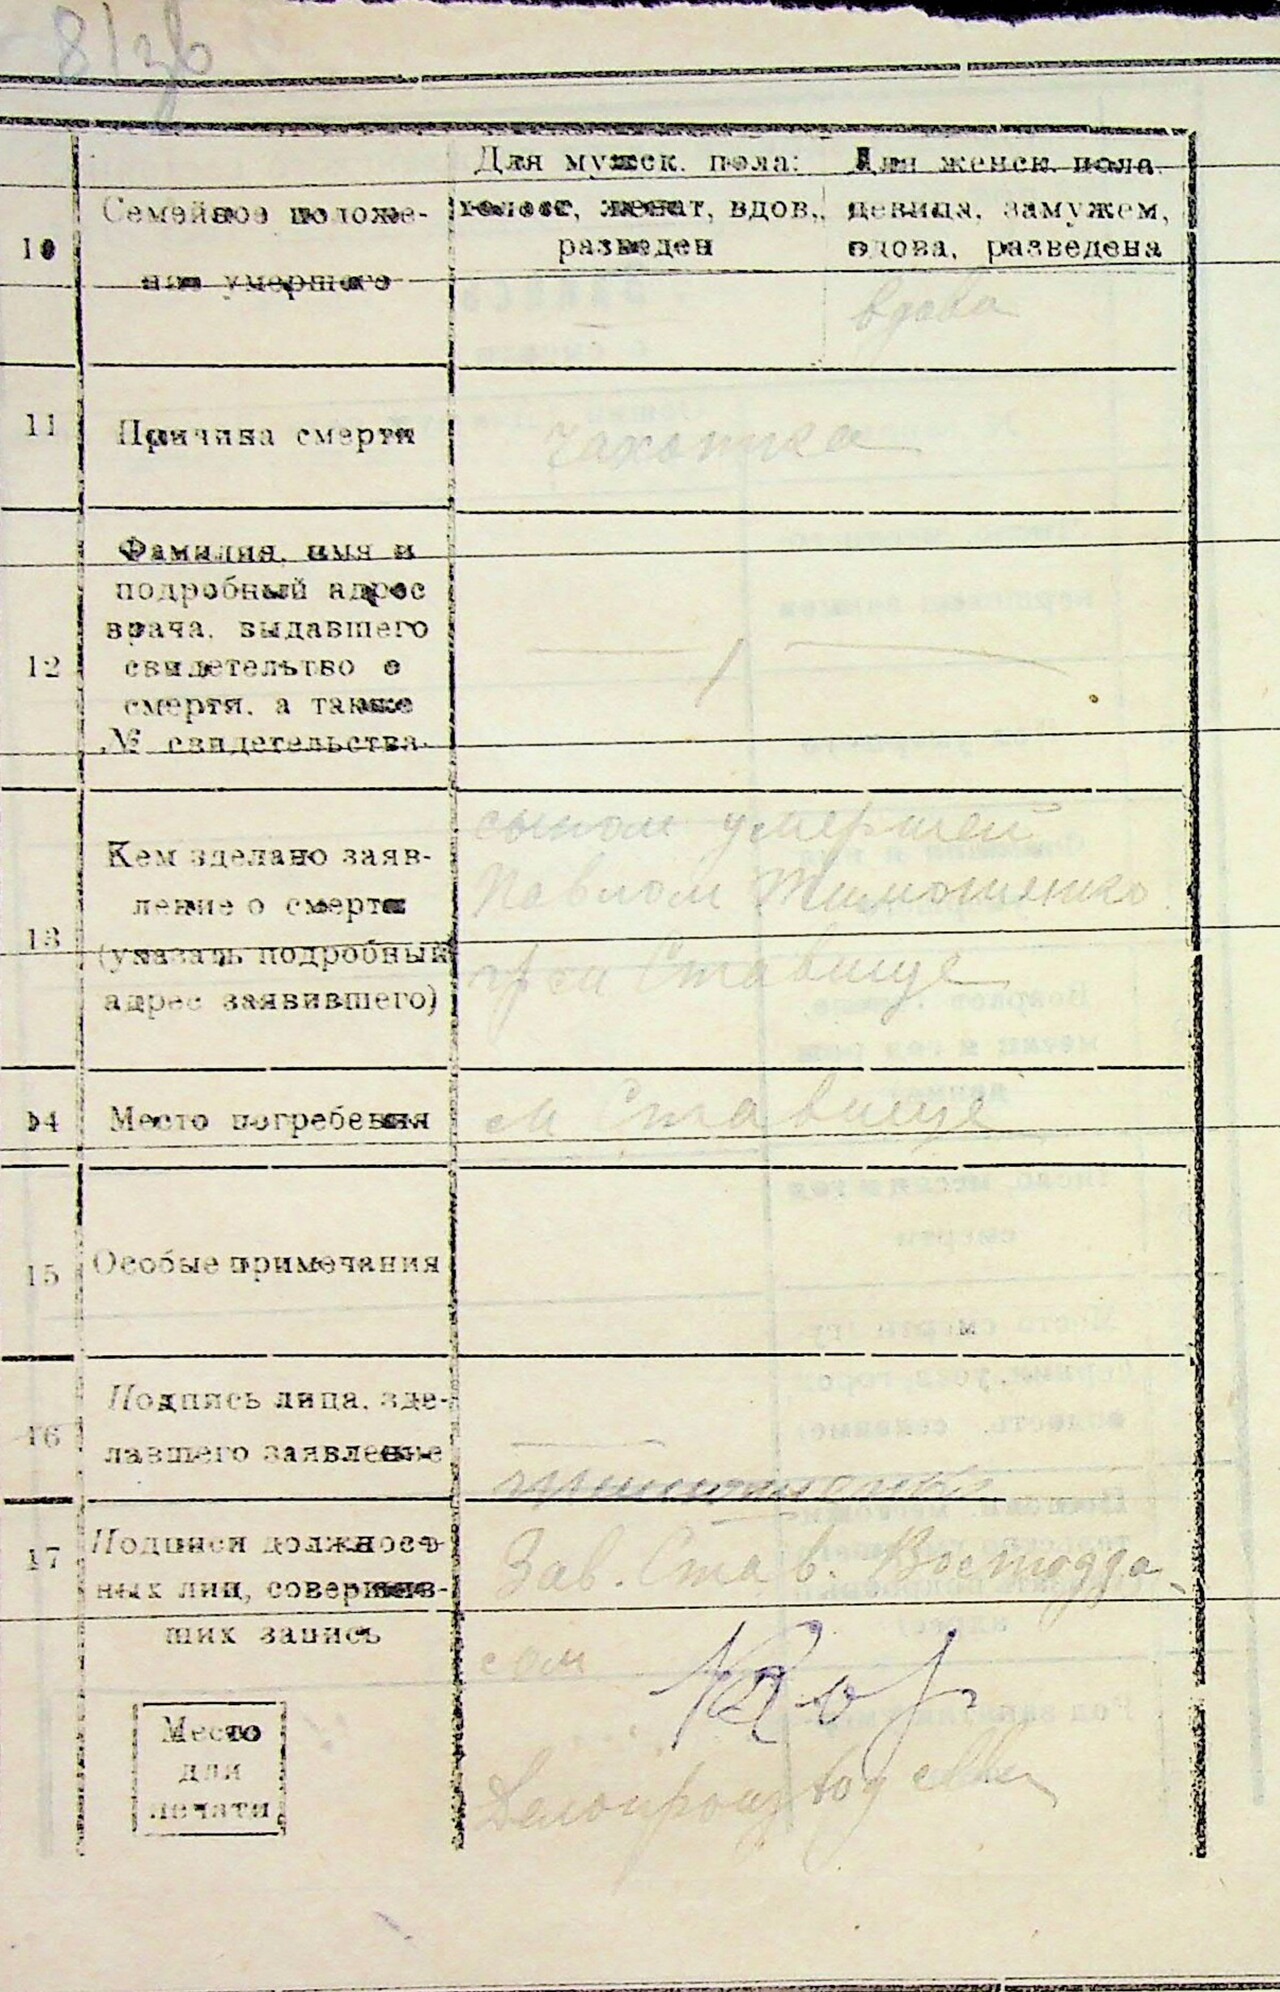 8/зв
Для мужск. пола: Для женск. пола.
10 Семейное положе- холост, женат, вдов., девица, замужем,
разведен вдова, разведена
ние умершего вдова
11 Причина смерти чахотка
Фамилия, имя и
подробный адрес
врача, выдавшего
12 свидетельство о
смерти, а также
№ свидетельства.
сыном умершей
Кем зделано заяв-
ление о смерти Павлом Тимошенко
13 (указать подробный гр м Ставище
адрес заявившего)
14 Место погребения м Ставище
15 Особые примечания
Подпись лица, зде-
16 лавшего заявление
17 Подписи должност- Зав. Став.
ных лиц, совершив-
ших запись сом
Место
для
печати
Делопроизвод